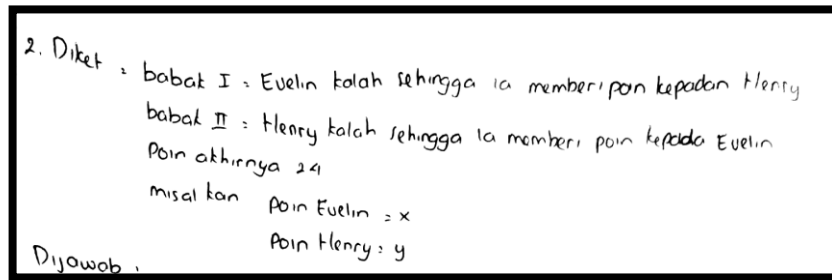 2. Diket : babak I : Evelin kalah sehingga ia memberi poin kepadan Henry
babak II : Henry kalah sehingga ia memberi poin kepada Evelin
Poin akhirnya 24
misal kan poin Evelin = x
Poin Henry : y
Dijawab :